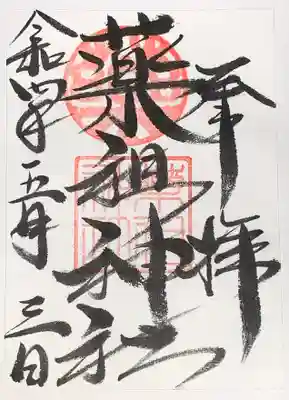 奉拝
薬祖神社
令和四年五月三日